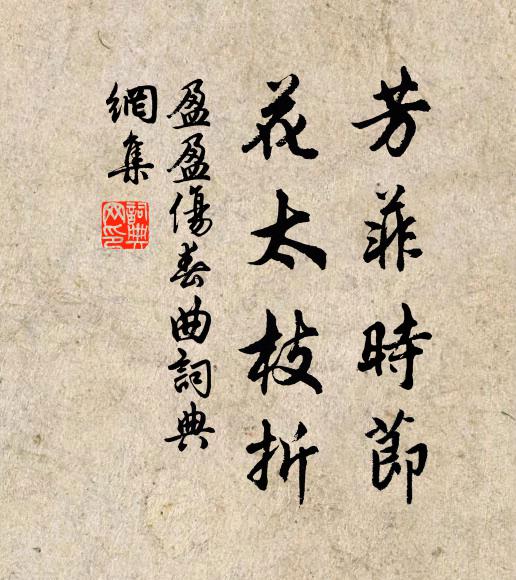 芳菲時節
花太枝折
盈盈傷春曲詞典
網集
詞典
网印